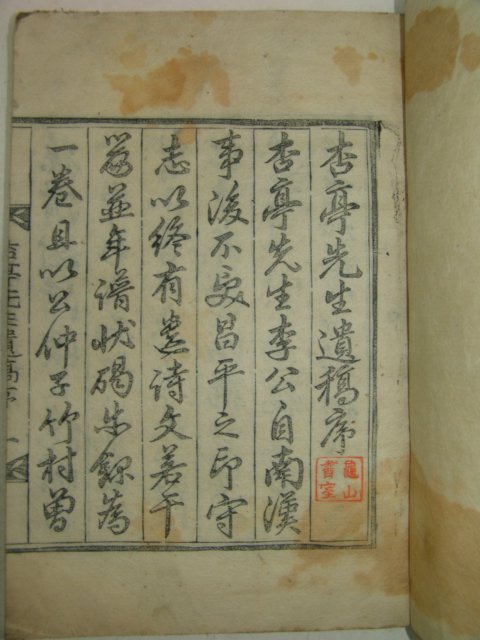 杏亭先生遺稿序
杏亭先生李公自南漢
事後不受昌平之印守
志以終有遺詩文若干
篇並年譜狀碣等錄為
一卷且以公仲子竹村曾
杏亭先生遺稿序 一
龜山
書室